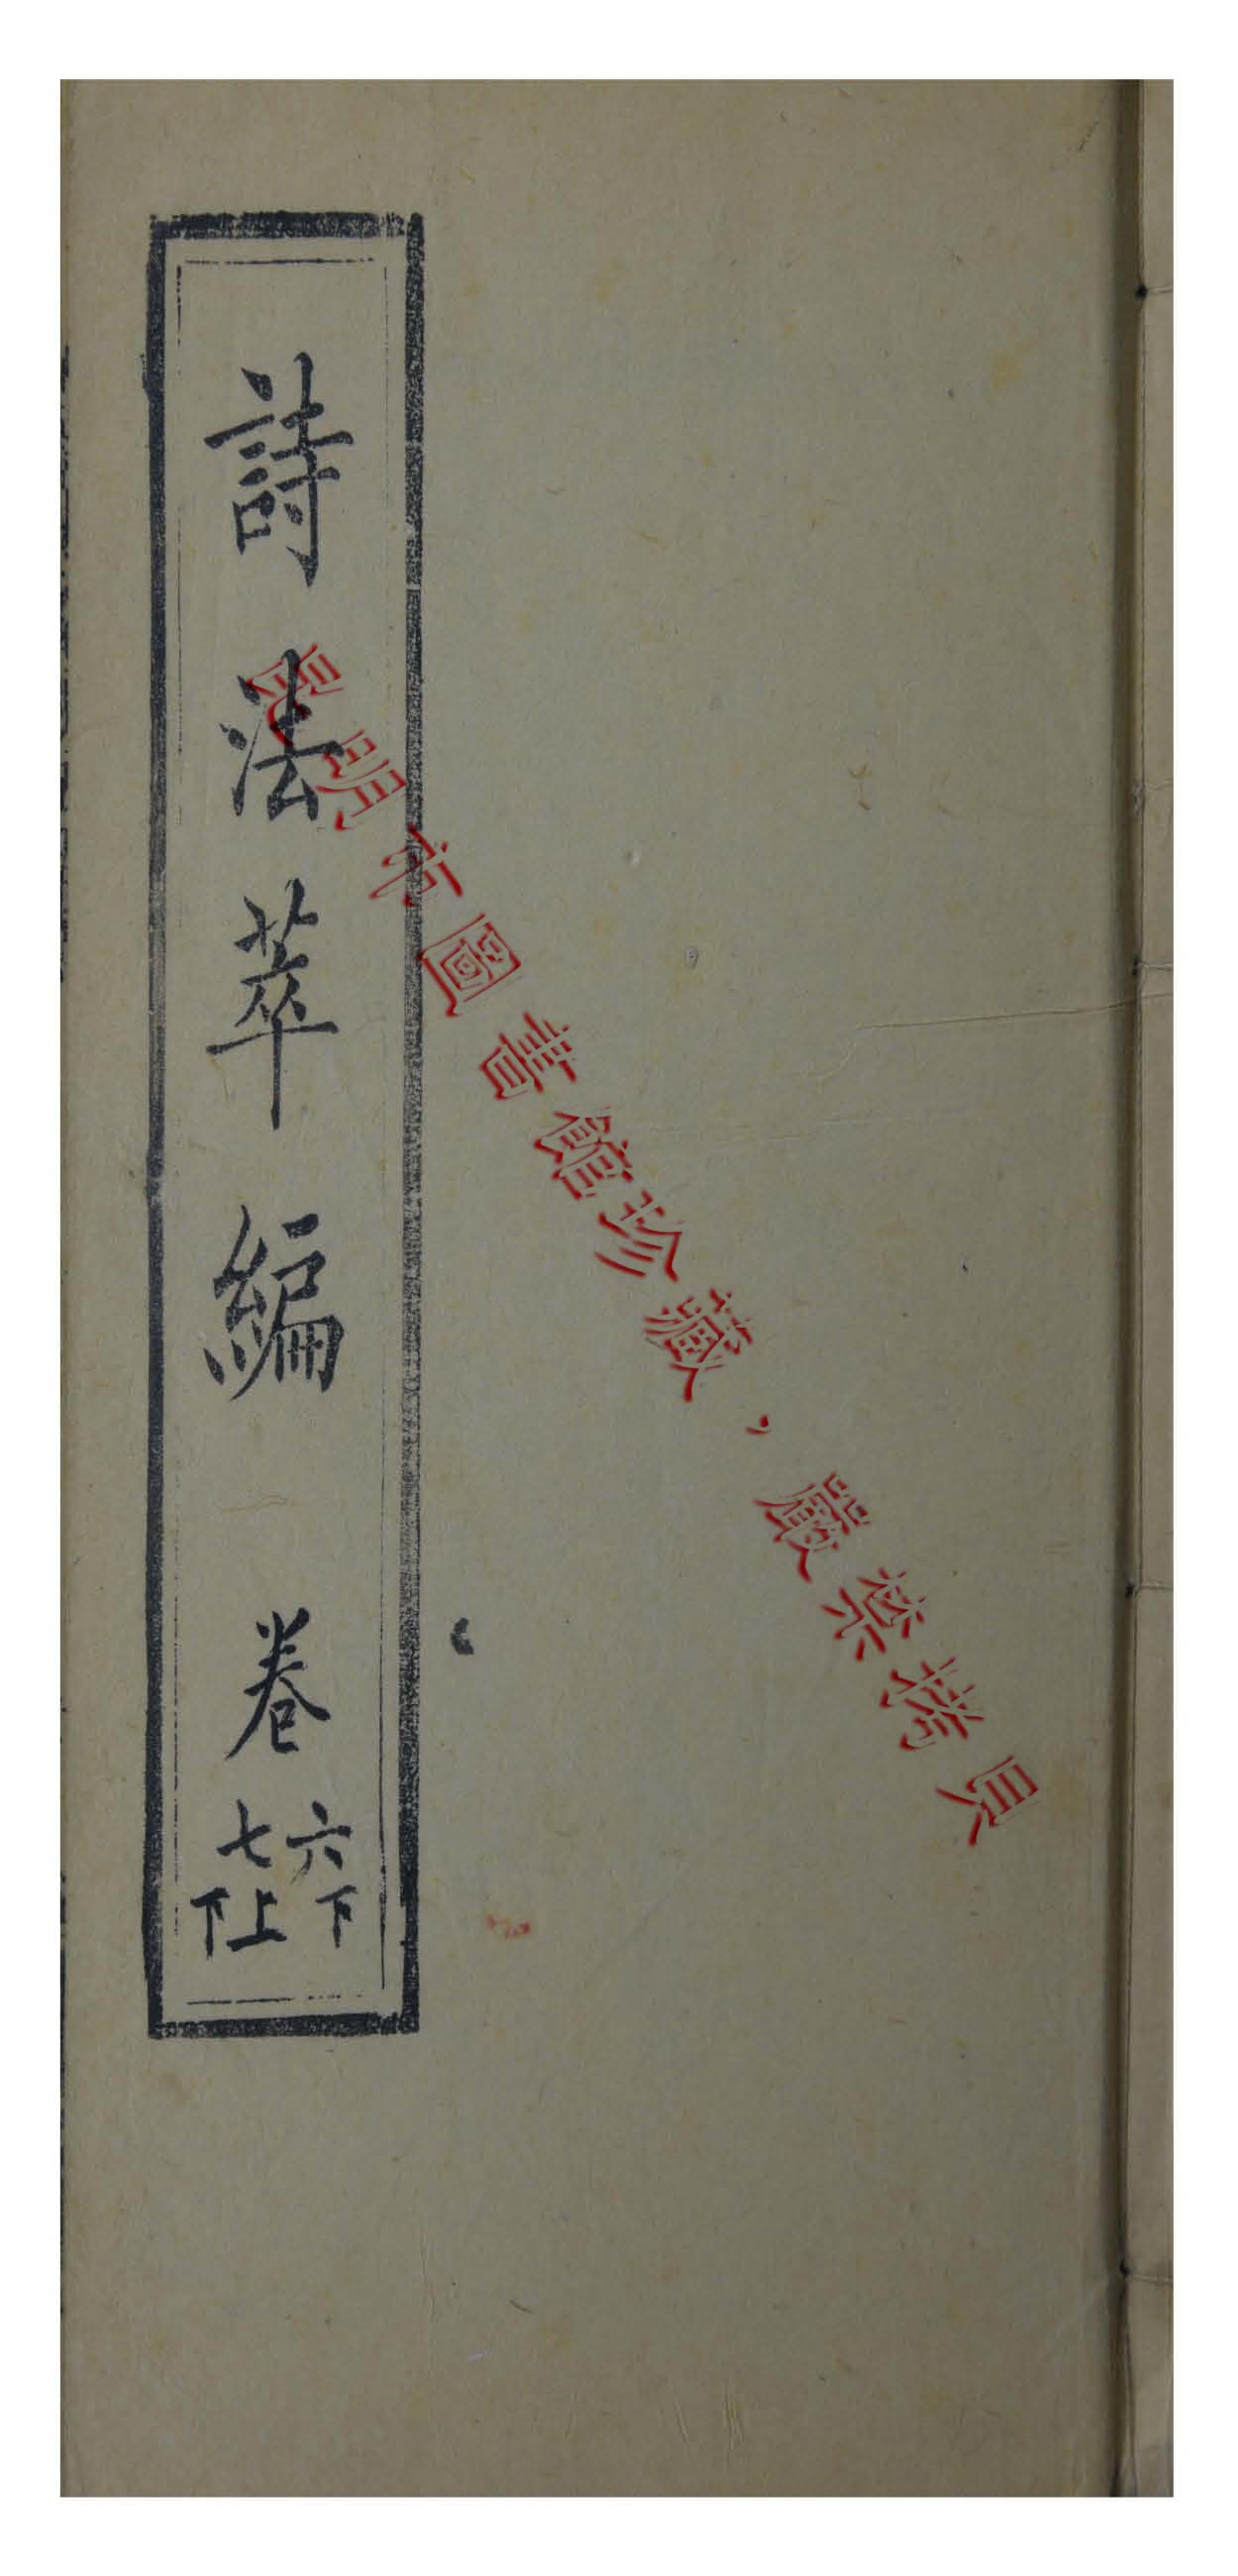 詩法萃編 卷
六下
七上下
昆明市圖書館珍藏，嚴禁拷貝